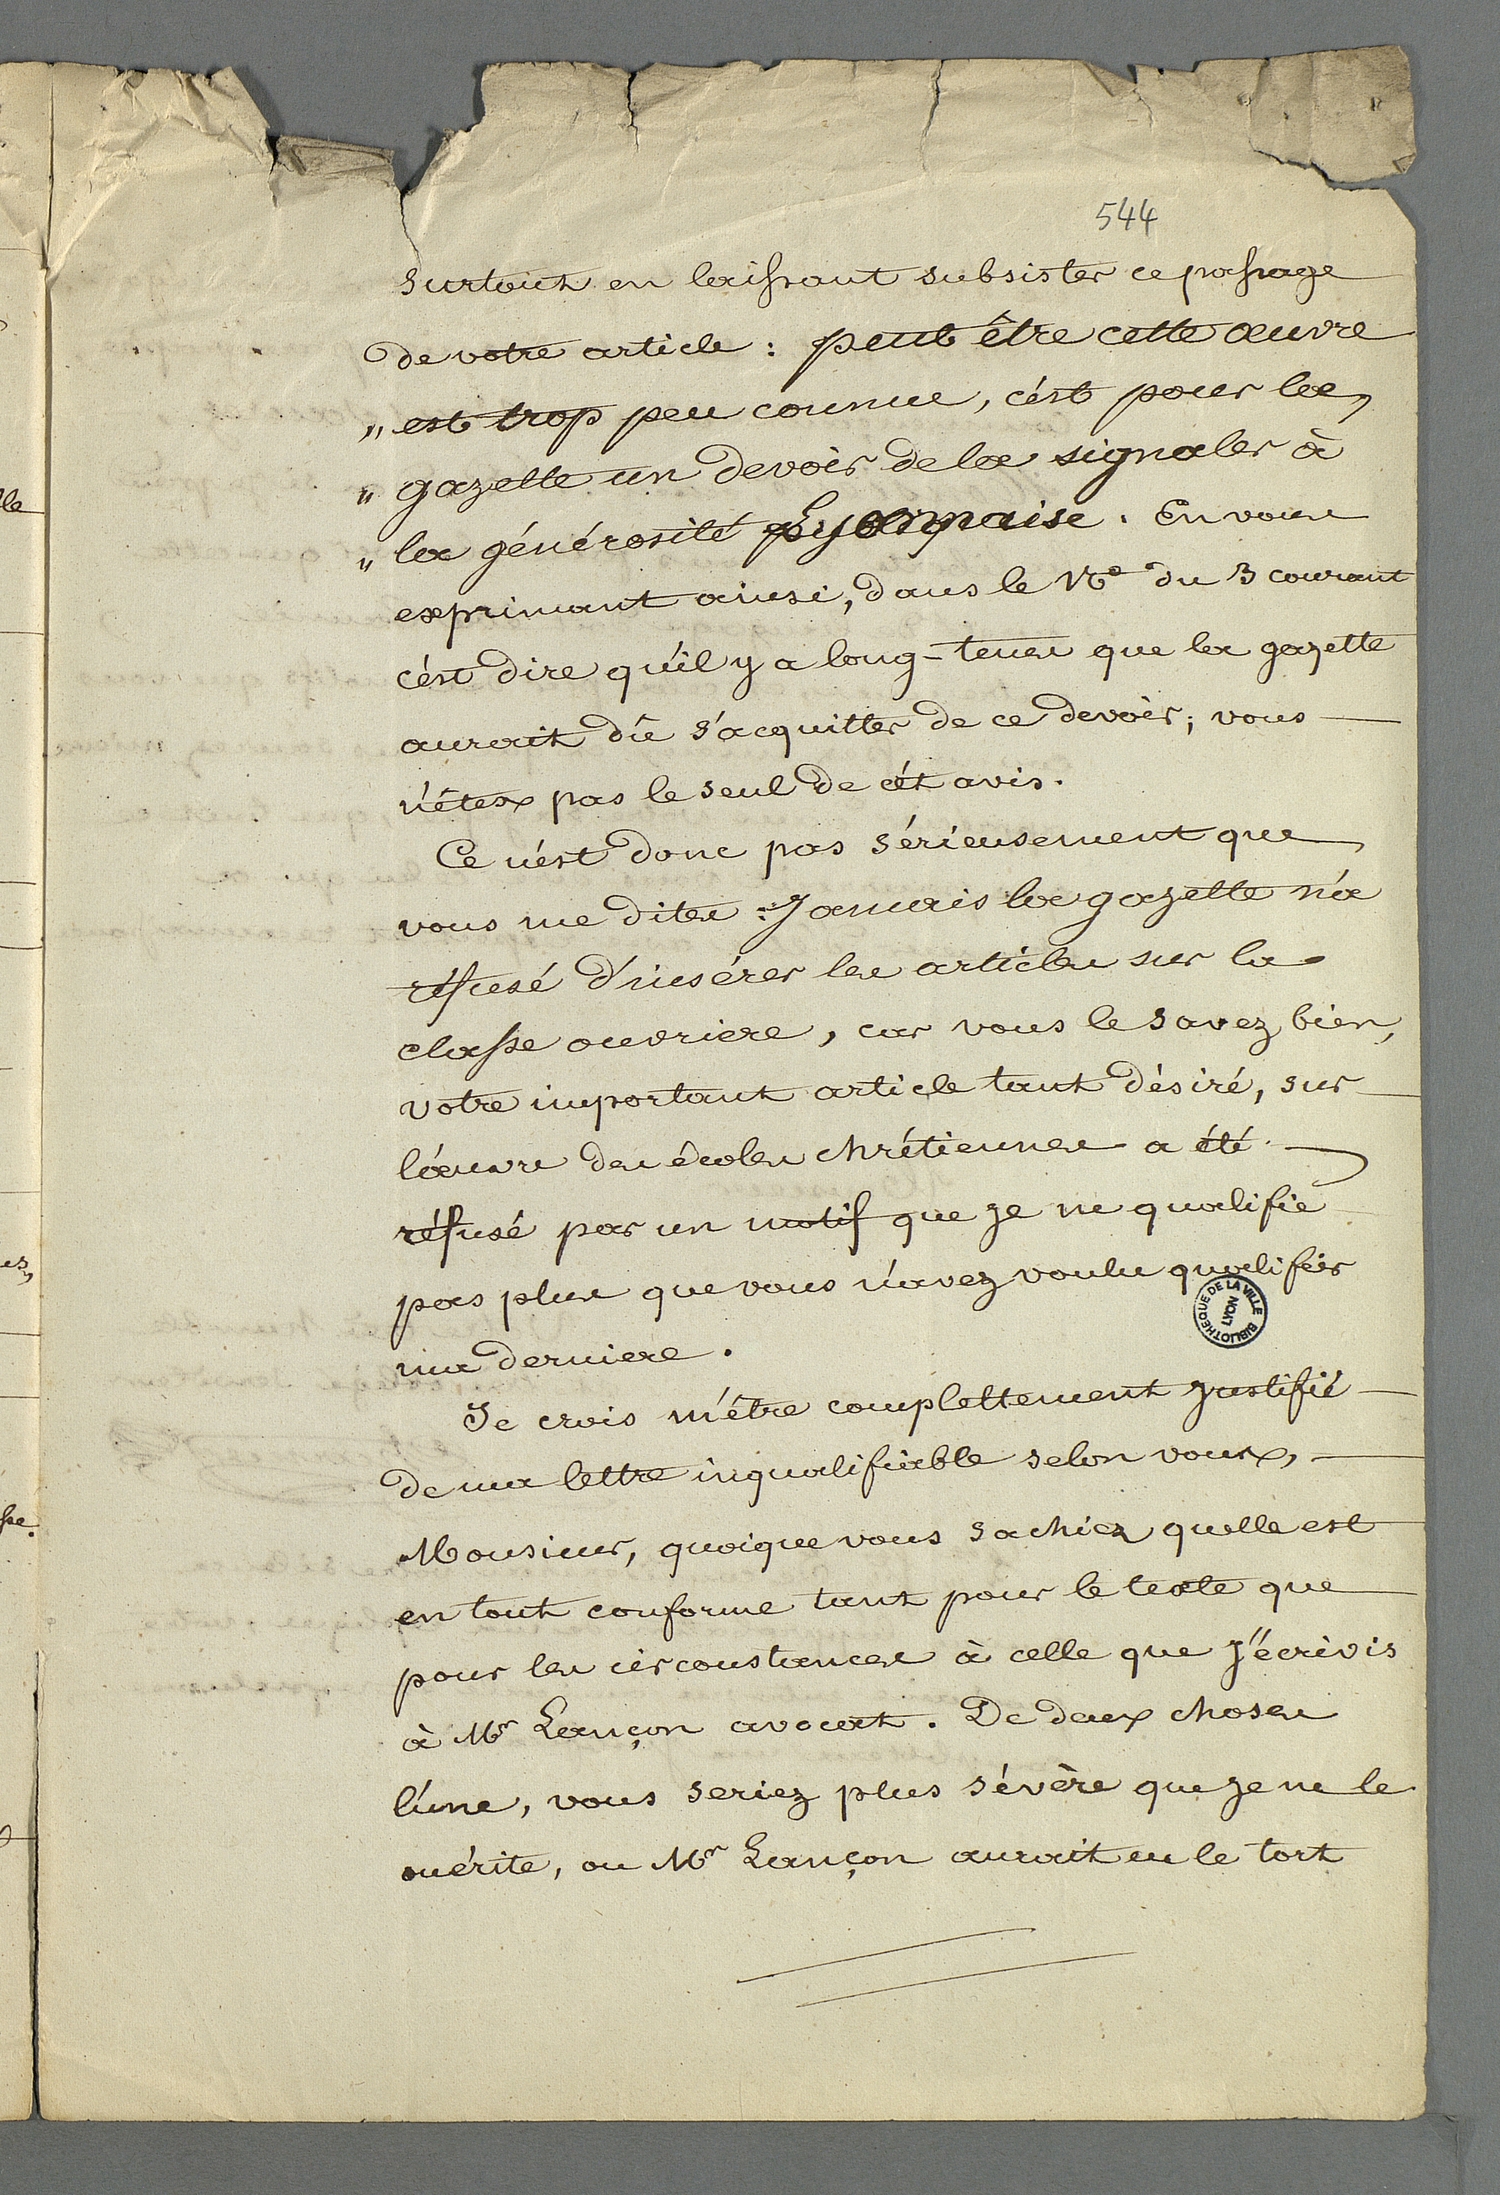 544
surtout en laissant subsister ce passage
de votre article : peut être cette œuvre
„ est trop peu connue, c'est pour la
„ gazette un devoir de la signaler à
„ la générosité Lyonnaise. En vous
exprimant ainsi, dans le No du 3 courant
c'est dire qu'il y a long-tems que la gazette
aurait dû s'acquitter de ce devoir; vous
n'êtes pas le seul de cét avis.
Ce n'est donc pas sérieusement que
vous me dites : Jamais la gazette n'a
réfusé d'insérer les articles sur la
classe ouvriere, car vous le savez bien,
votre important article tant désiré, sur
l'œuvre des écoles chrétiennes a été
réfusé par un motif que je ne qualifie
pas plus que vous n'avez voulu qualifier
ma derniere.
Je crois m'être complettement justifié
de ma lettre inqualifiable selon vous,
Monsieur, quoique vous sachiez quelle est
en tout conforme tant pour le texte que
pour les circonstances à celle que j'écrivis
à Mr Lançon avocat. De deux choses
l'une, vous seriez plus sévère que je ne le
mérite, ou Mr Lançon aurait eu le tort
BIBLIOTHEQUE DE LA VILLE
LYON